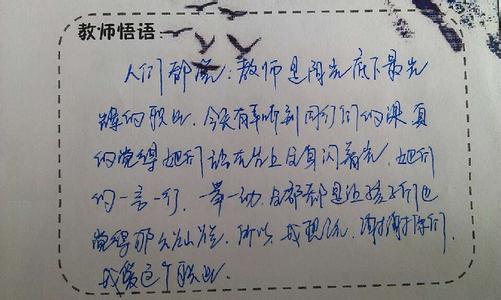 教师悟语:
人们都说:教师是阳光底下最光
辉的职业,今天有幸听到同行们的课,真
的觉得她们站在台上且身闪着光,她们
的一言一行,一举一动,都是让孩子们也
觉得那么,所以,我现说,谢谢你们,
我爱这个职业.